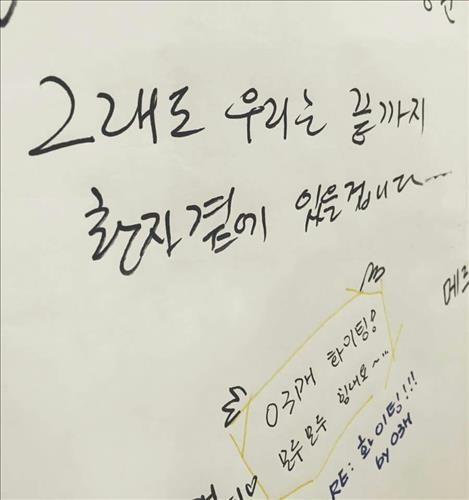 그래도 우리는 끝까지
환자곁에 있을겁니다...
03개 화이팅!
모두모두 힘내요~...
RE: 화이팅!!!
by 03개
메르